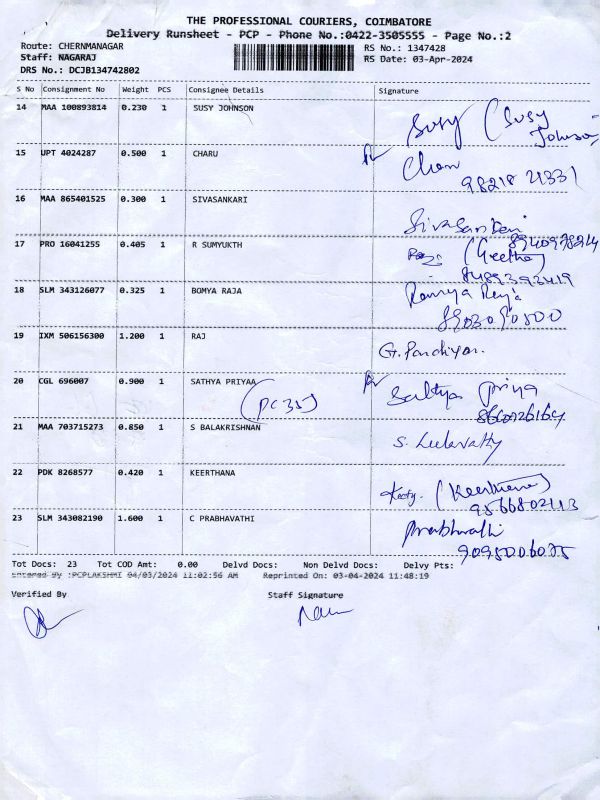 THE PROFESSIONAL COURIERS, COIMBATORE
Delivery Runsheet - PCP - Phone No.:0422-3505555 - Page No.:2
Route: CHERNMANAGAR RS No.: 1347428
Staff: NAGARAJ RS Date: 03-Apr-2024
DRS No.: DCJB134742802
S No Consignment No Weight PCS Consignee Details Signature
14 MAA 100893814 0.230 1 SUSY JOHNSON Susy (Susy Johnson
15 UPT 4024287 0.500 1 CHARU Charu
98218 21331
16 MAA 865401525 0.300 1 SIVASANKARI Sivasankari
8940978214
17 PRO 16041255 0.405 1 R SUMYUKTH (Geetha)
8489393419
18 SLM 343126077 0.325 1 BOMYA RAJA Ramya Raja
19 IXM 506156300 1.200 1 RAJ G. Pandiyan.
20 CGL 696007 0.900 1 SATHYA PRIYAA Sathya Priya
(PC35)
21 MAA 703715273 0.850 1 S BALAKRISHNAN S. Leelavathy
22 PDK 8268577 0.420 1 KEERTHANA Keety. (Keerthana)
9566802113
23 SLM 343082190 1.600 1 C PRABHAVATHI Prabhvathi
9095006075
Tot Docs: 23 Tot COD Amt: 0.00 Delvd Docs: Non Delvd Docs: Delvy Pts:
Entered By :PCPLAKSHMI 04/03/2024 11:02:56 AM Reprinted On: 03-04-2024 11:48:19
Verified By Staff Signature